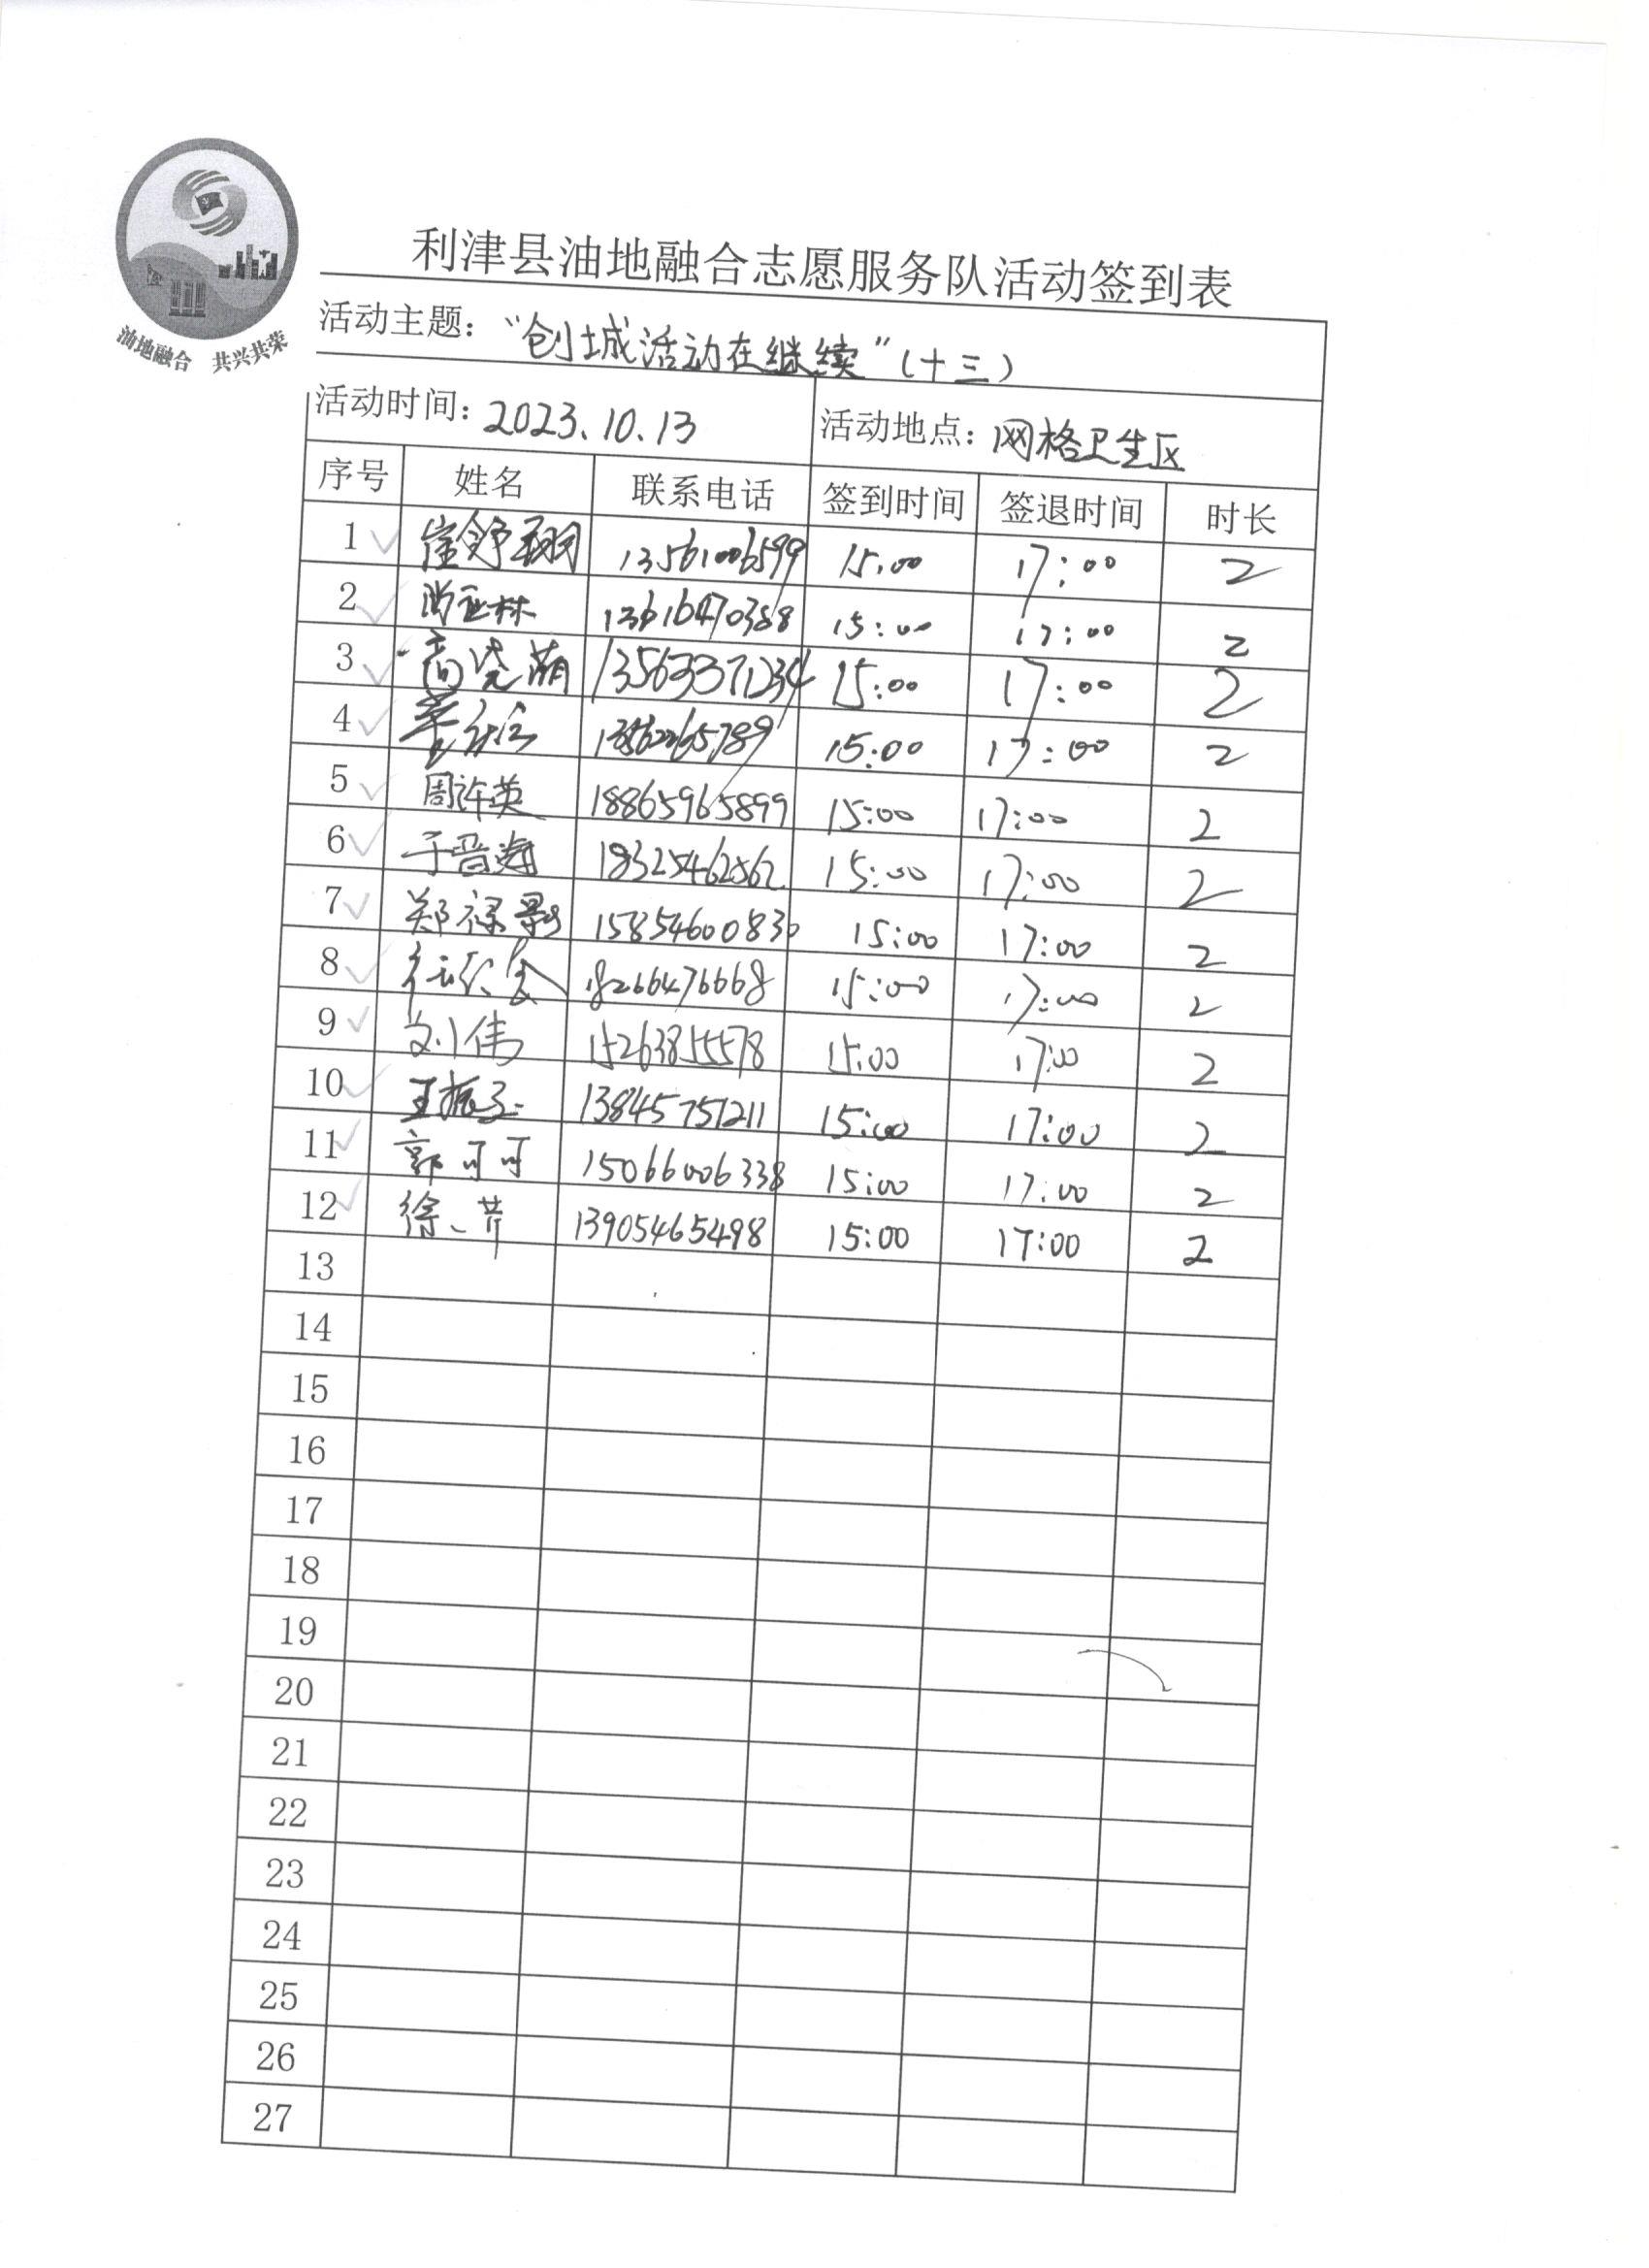 利津县油地融合志愿服务队活动签到表
油地融合 共兴共荣
活动主题："创城活动在继续"(十三)
活动时间：2023.10.13 活动地点：网格卫生区
序号 姓名 联系电话 签到时间 签退时间 时长
1 崔舒翔 13561006599 15:00 17:00 2
2 13616470388 15:00 17:00 2
3 高晓萌 13563371234 15:00 17:00 2
4 15:00 17:00 2
5 周许英 18865965899 15:00 17:00 2
6 于晋海 18325462562 15:00 17:00 2
7 郑禄影 15854600830 15:00 17:00 2
8 18266476668 15:00 17:00 2
9 刘伟 15263855578 15:00 17:00 2
10 13845751211 15:00 17:00 2
11 郭可可 15066006338 15:00 17:00 2
12 徐芹 13905465498 15:00 17:00 2
13
14
15
16
17
18
19
20
21
22
23
24
25
26
27